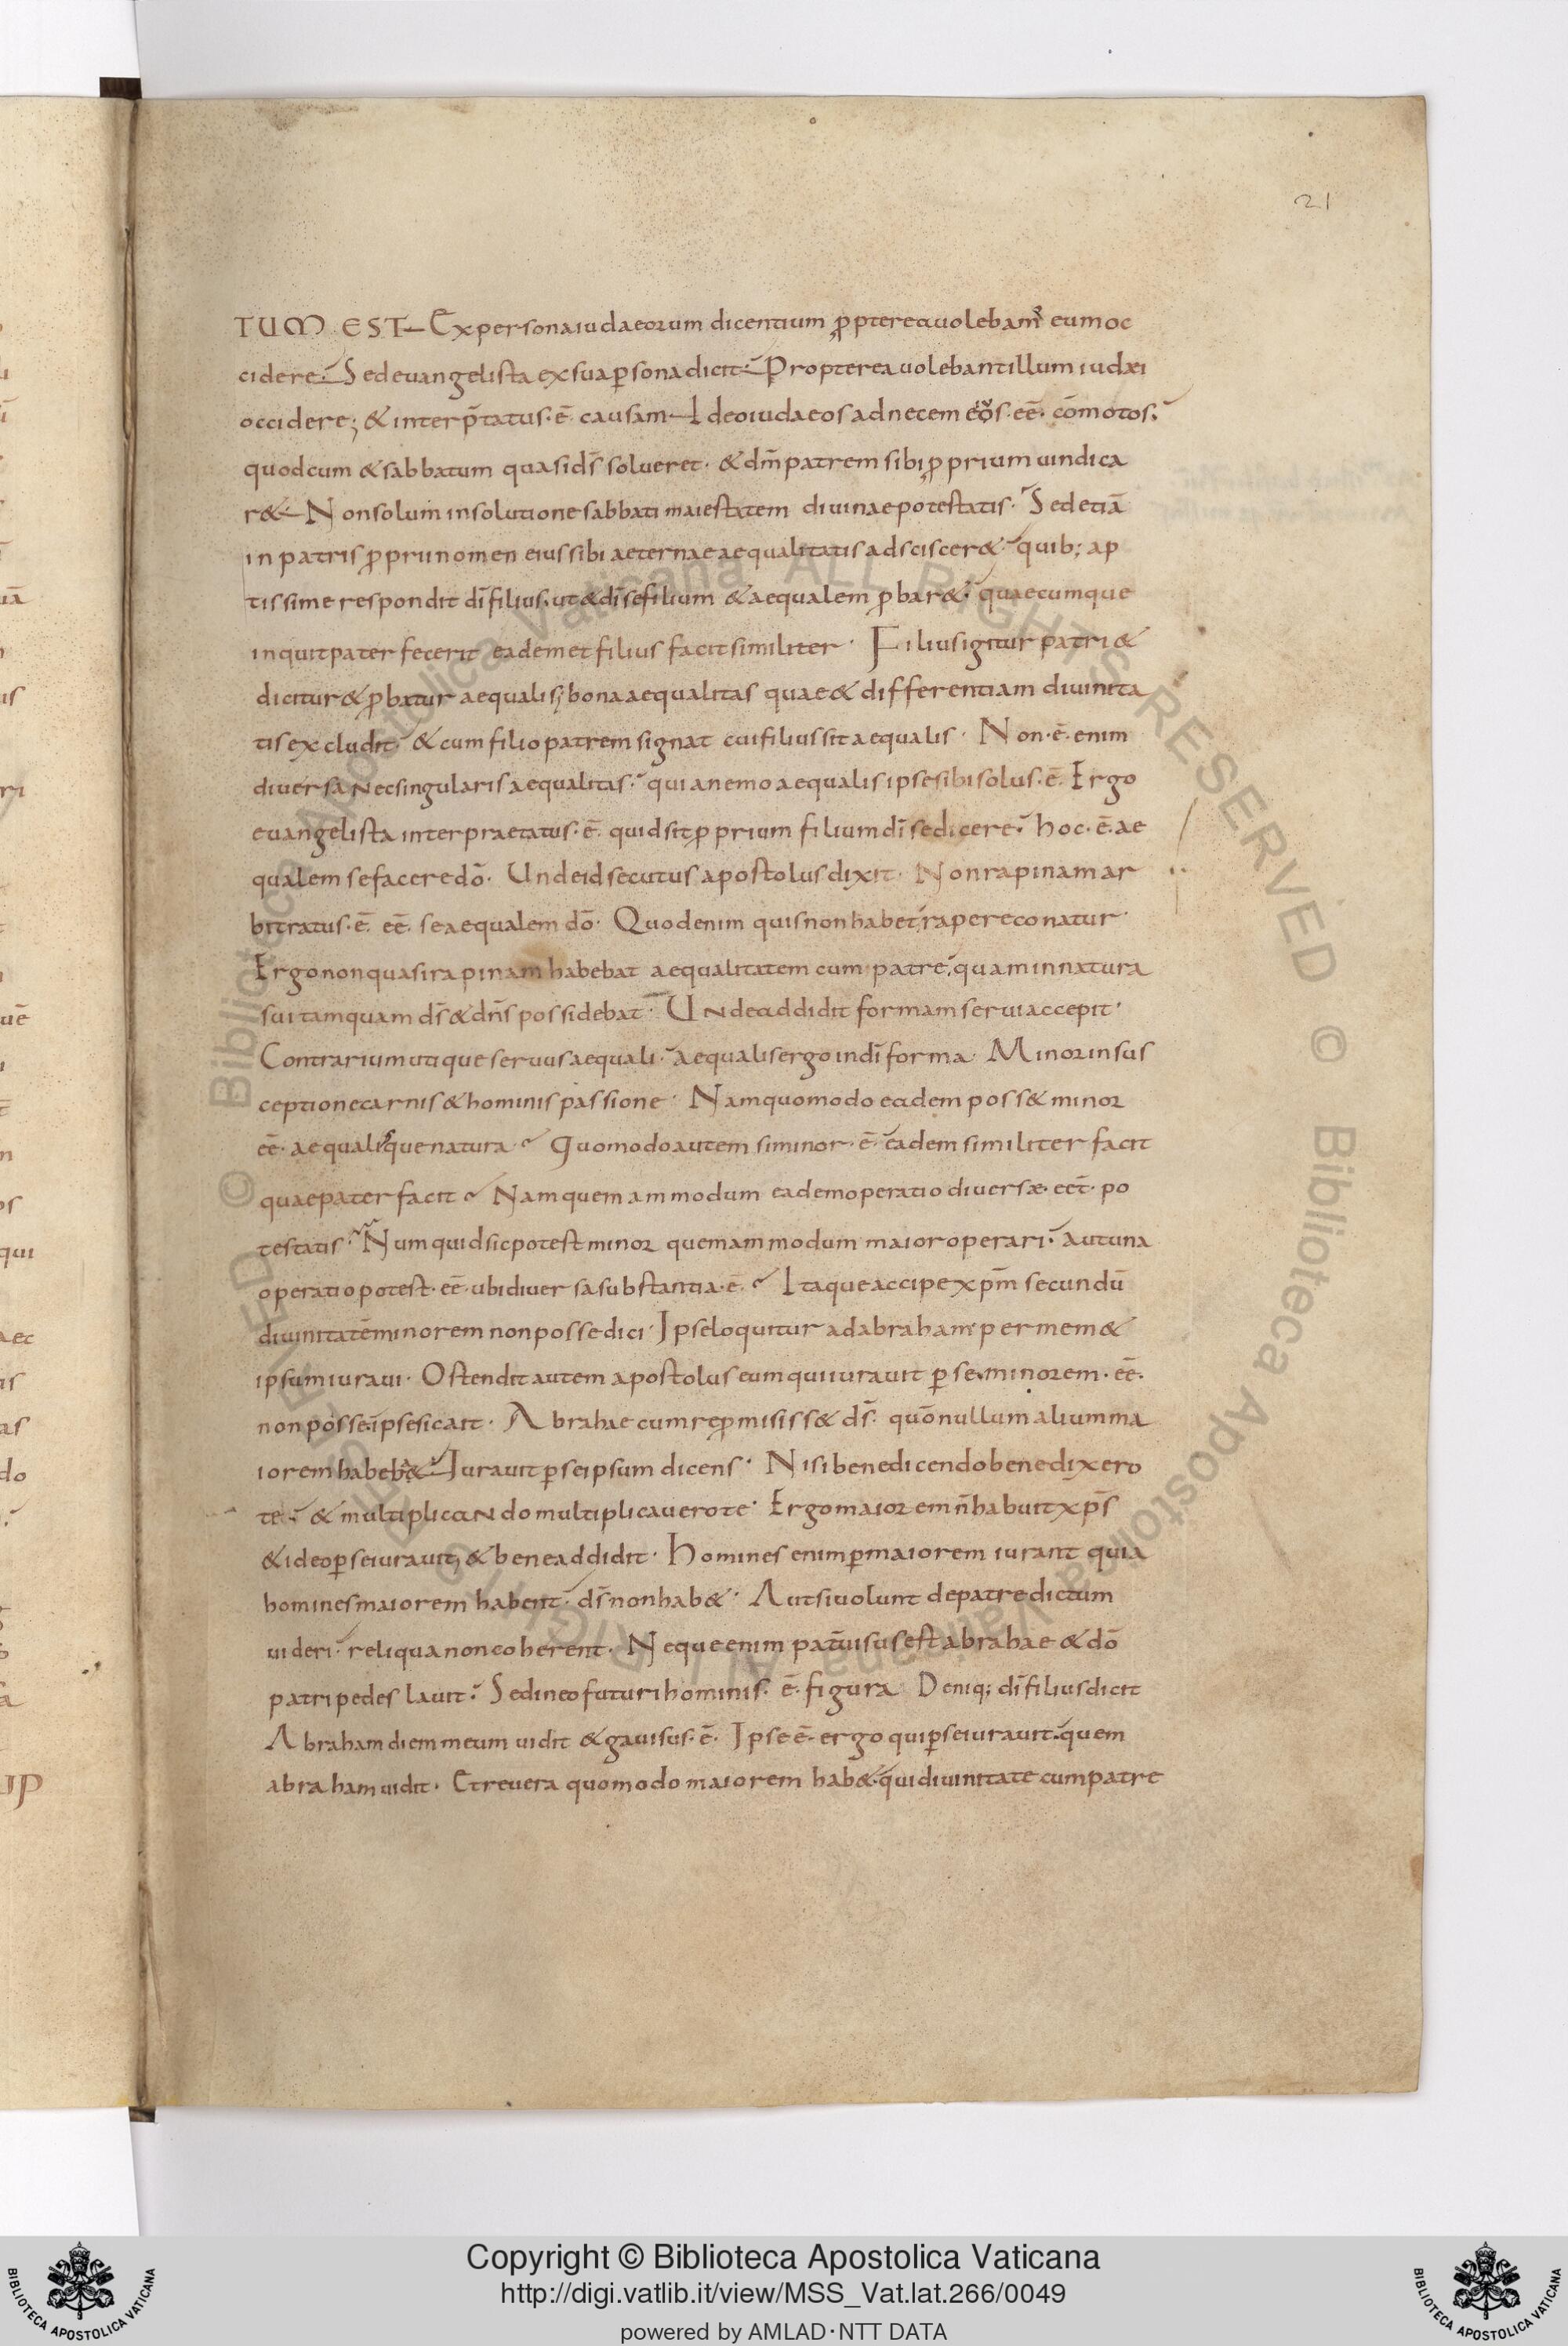 21
TUM EST Ex persona iudaeorum dicentium ꝓpterea uolebam͛ eum oc
cidere. Sed euangelista ex sua ꝑsona dicit. Propterea uolebant illum iudæi
occidere; & interp̄tatus·ē· causam Ideo iudaeos ad necem eos·eē·cōmotos.
quod cum & sabbatum quasi ds̄ solueret· & dm̄ patrem sibi ꝓprium uindica
r& Non solum in solutione sabbati maiestatem diuinae potestatis· Sed etiā
in patris ꝓprii nomen eius sibi aeternae aequalitatis adsciscer&· quib; ap
tissime respondit dī filius· ut & dī se filium & aequalem ꝓbar&· quaecumque
inquit pater fecerit eadem et filius facit similiter· Filius igitur patri &
dicitur & ꝓbatur aequalis; bona aequalitas quae & differentiam diuinita
tis excludit· & cum filio patrem signat cui filius sit aequalis· Non·ē·enim
diuersa Nec singularis aequalitas· quia nemo aequalis ipse sibi solus·ē· Ergo
euangelista interpraetatus·ē· quid sit ꝓprium filium dī se dicere· hoc·ē·ae
qualem se facere dō· Unde id secutus apostolus dixit· Non rapinam ar
bitratus·ē· eē· se aequalem dō· Quod enim quis non habet rapere conatur·
Ergo non quasi rapinam habebat aequalitatem cum patre· quam in natura
sui tamquam ds̄ & dn̄s possidebat· UNde addidit formam serui accepit·
Contrarium utique seruus aequali· aequalis ergo in dī forma· Minor in sus
ceptione carnis & hominis passione· Nam quomodo eadem poss& minor
eē· aequalisque natura· Quomodo autem si minor·ē· eadem similiter facit
quae pater facit· Nam quem ammodum eadem operatio diuersæ·eēt· po
testatis· Numquid sic potest minor quem ammodum maior operari· aut una
operatio potest·eē·ubi diuersa substantia·ē· Itaque accipe xpm̄ secundū
diuinitatē minorem non posse dici· Ipse loquitur ad abraham· per mem&
ipsum iuraui· Ostendit autem apostolus eum qui iurauit ꝑ se minorem·eē·
non posse· ipse sic ait· Abrahae cum reꝓmisiss& ds̄· quō nullum alium ma
iorem hab& Iurauit ꝑ se ipsum dicens· Nisi benedicendo benedixero
te· & multiplicaNdo multiplicauero te· Ergo maiorem n̄ habuit xps̄
& ideo ꝑ se iurauit; & bene addidit· Homines enim ꝑ maiorem iurant quia
homines maiorem habent· ds̄ non hab&· Aut si uolunt de patre dictum
uideri· reliqua non coherent· Neque enim pat̄ uisus est abrahae & dō
patri pedes lauit· Sed in eo futuri hominis·ē·figura Deniq; dī filius dicit
Abraham diem meum uidit & gauisus·ē· Ipse ē·ergo qui ꝑ se iurauit· quem
abraham uidit· Et reuera quomodo maiorem hab&· qui diuinitate cum patre
© Biblioteca Apostolica Vaticana ALL RIGHTS RESERVED © Biblioteca Apostolica Vaticana ALL RIGHTS RESERVED
Copyright © Biblioteca Apostolica Vaticana
http://digi.vatlib.it/view/MSS_Vat.lat.266/0049
powered by AMLAD·NTT DATA
BIBLIOTECA APOSTOLICA VATICANA
BIBLIOTECA APOSTOLICA VATICANA